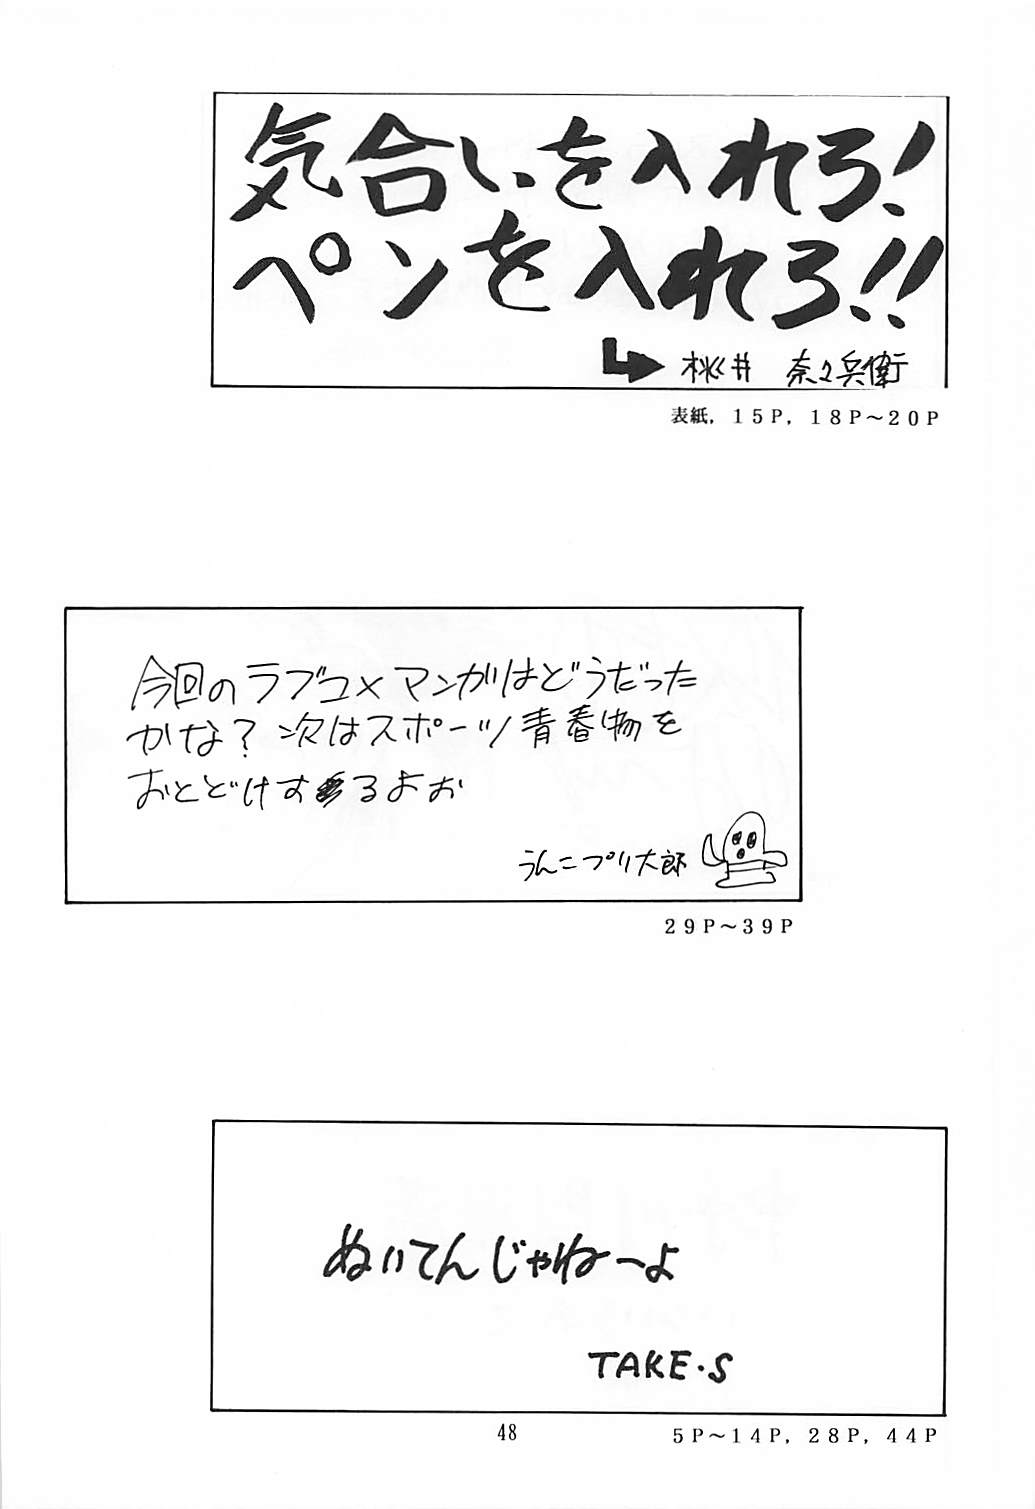 気合いを入れろ!
ペンを入れろ!!
桃井 奈々兵衛
表紙,15P,18P～20P
今回のラブコメマンガはどうだった
かな?次はスポーツ青春物を
おとどけするよお
うんこプリ太郎
29P～39P
ぬいてんじゃねーよ
TAKE・S
48
5P～14P,28P,44P